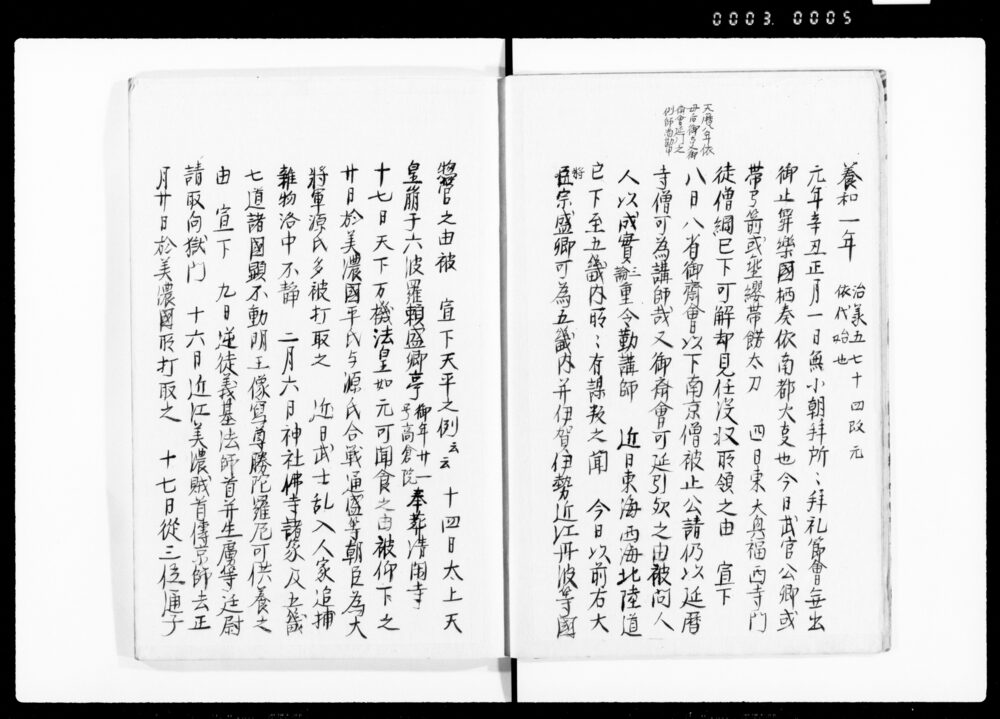 0003 0005
天暦八年依
母后御事御
斎會延行之
例師尚勘申
養和一年
治美五七十四改元
依代始也
元年辛丑正月一日無小朝拜所ゝ拜礼節會無出
御止笄樂國栖奏依南都火事也今日武官公卿或
帶弓箭或垂纓帶餝太刀　四日東大興福両寺門
徒僧綱已下可解却見任没収所領之由　宣下
八日八省御齋會以下南京僧被止公請仍以延暦
寺僧可為講師哉又御斎會可延引欤之由被問人
人以成實三論重令勤講師　近日東海西海北陸道
已下至五畿内所ゝ有謀叛之聞　今日以前右大
将
臣宗盛卿可為五畿内并伊賀伊勢近江丹波等國
惣管之由被　宣下天平之例云云　十四日太上天
皇崩于六波羅頼盛卿亭御年廿一号高倉院奉葬清閑寺
十七日天下万機法皇如元可聞食之由被仰下之
廿日於美濃國平氏与源氏合戦通盛等朝臣為大
将軍源氏多被打取之　近日武士乱入人家追捕
雑物洛中不静　二月六日神社佛寺諸家及五畿
七道諸國顕不動明王像寫尊勝陀羅尼可供養之
由　宣下　九日逆徒義基法師首并生虜等迋尉
請取向獄門　十六日近江美濃賊首傳京師去正
月廿日於美濃國所打取之　十七日從三位通子